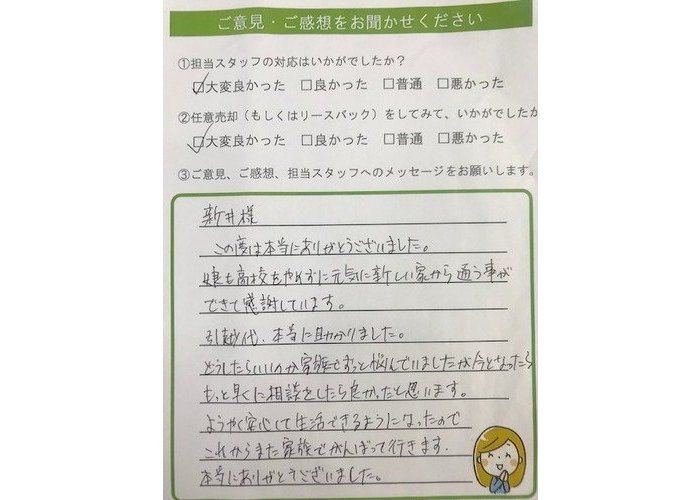 ご意見・ご感想をお聞かせください
①担当スタッフの対応はいかがでしたか？
☑大変良かった □良かった □普通 □悪かった
②任意売却（もしくはリースバック）をしてみて、いかがでしたか
☑大変良かった □良かった □普通 □悪かった
③ご意見、ご感想、担当スタッフへのメッセージをお願いします。
新井様
この度は本当にありがとうございました。
娘も高校をやめずに元気に新しい家から通う事が
できて感謝しています。
引越代、本当に助かりました。
どうしたらいいのか家族でずっと悩んでいましたが今となったら
もっと早くに相談をしたら良かったと思います。
ようやく安心して生活できるようになったので
これからまた家族でがんばって行きます。
本当にありがとうございました。